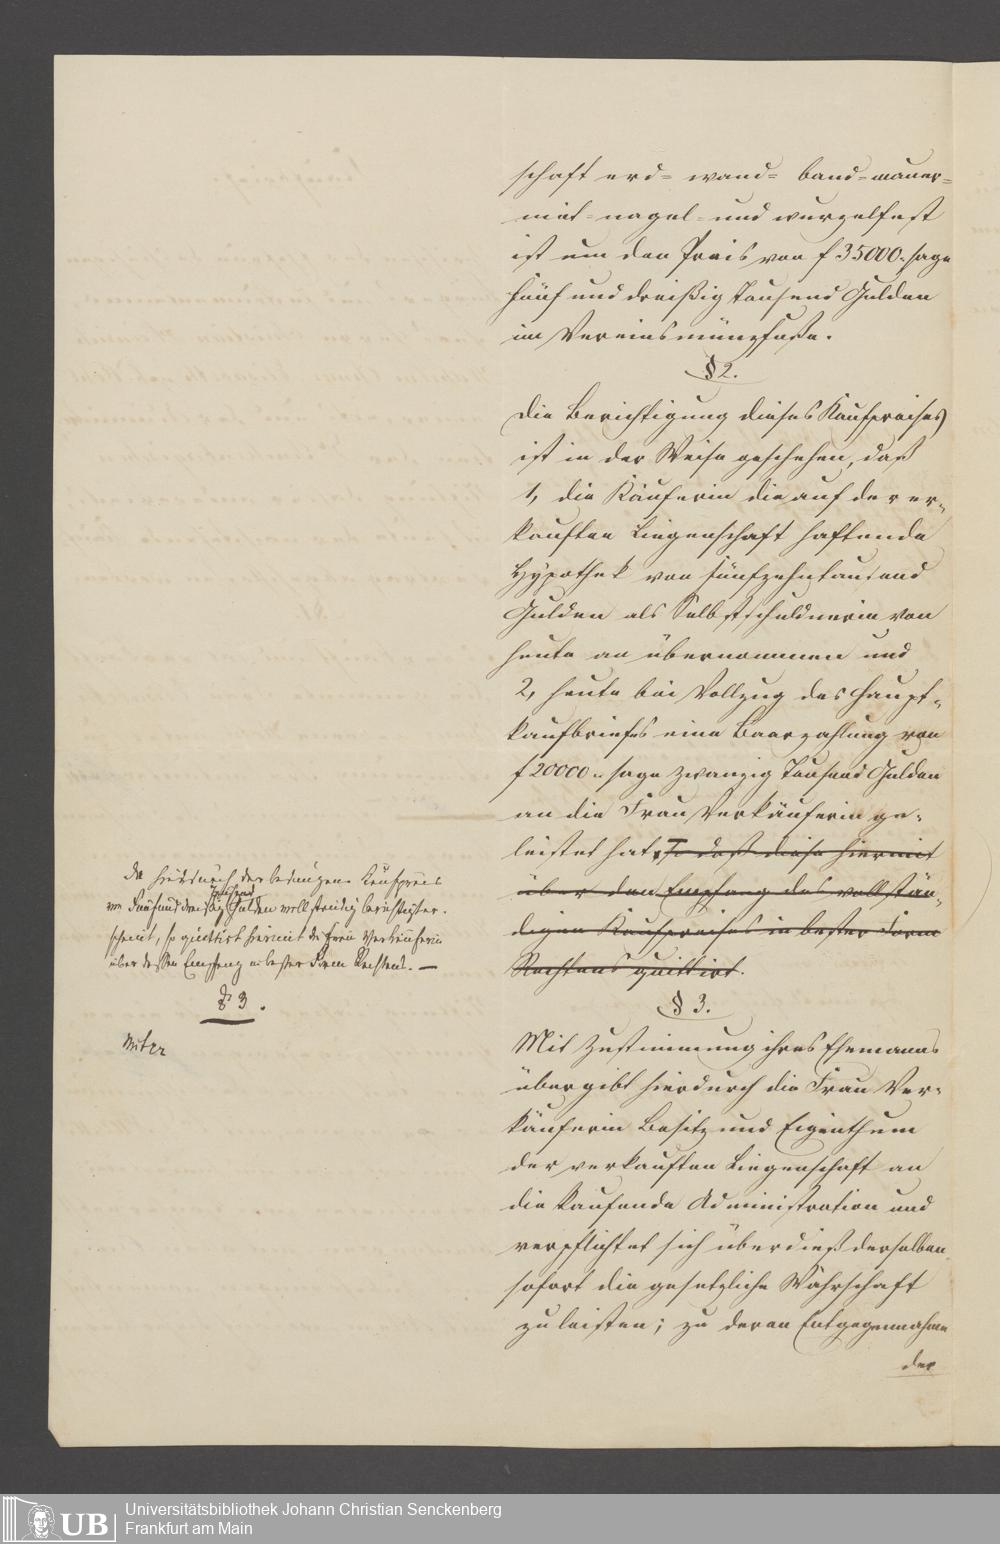 schaft erd= wand= band= mauer=
niet= nagel= und wurzelfest
ist um den Preis von f 35000. sage
fünf und dreißig Tausend Gulden
im Vereinsmünzfuße.
§ 2.
Die Berichtigung dieses Kaufpreises
ist in der Weise geschehen, daß
1, die Käuferin die auf der er-
kauften Liegenschaft haftende
Hypothek von fünfzehntausend
Gulden als Selbstschuldnerin von
heute an übernommen und
2, heute bei Vollzug des Haupt-
kaufbriefes eine Baarzahlung von
f 20000.. sage zwanzig Tausend Gulden
an die Frau Verkäuferin ge-
leistet hat, so daß diese hiermit
über den Empfang des vollstän-
digen Kaufpreises in bester Form
Rechtens quittirt.
Da hierdurch der bedungene Kaufpreis
von Fünfunddreißig Tausend Gulden vollständig berichtigt er-
scheint, so quittirt hiermit die Frau Verkäuferin
über dessen Empfang in bester Form Rechtens. —
§ 3.
§ 3.
Mit Zustimmung ihres Ehemanns
übergibt hierdurch die Frau Ver-
käuferin Besitz und Eigenthum
der verkauften Liegenschaft an
die kaufende Administration und
verpflichtet sich überdieß derselben
sofort die gesetzliche Währschaft
zu leisten; zu deren Entgegennahme
der
Universitätsbibliothek Johann Christian Senckenberg
Frankfurt am Main
UB